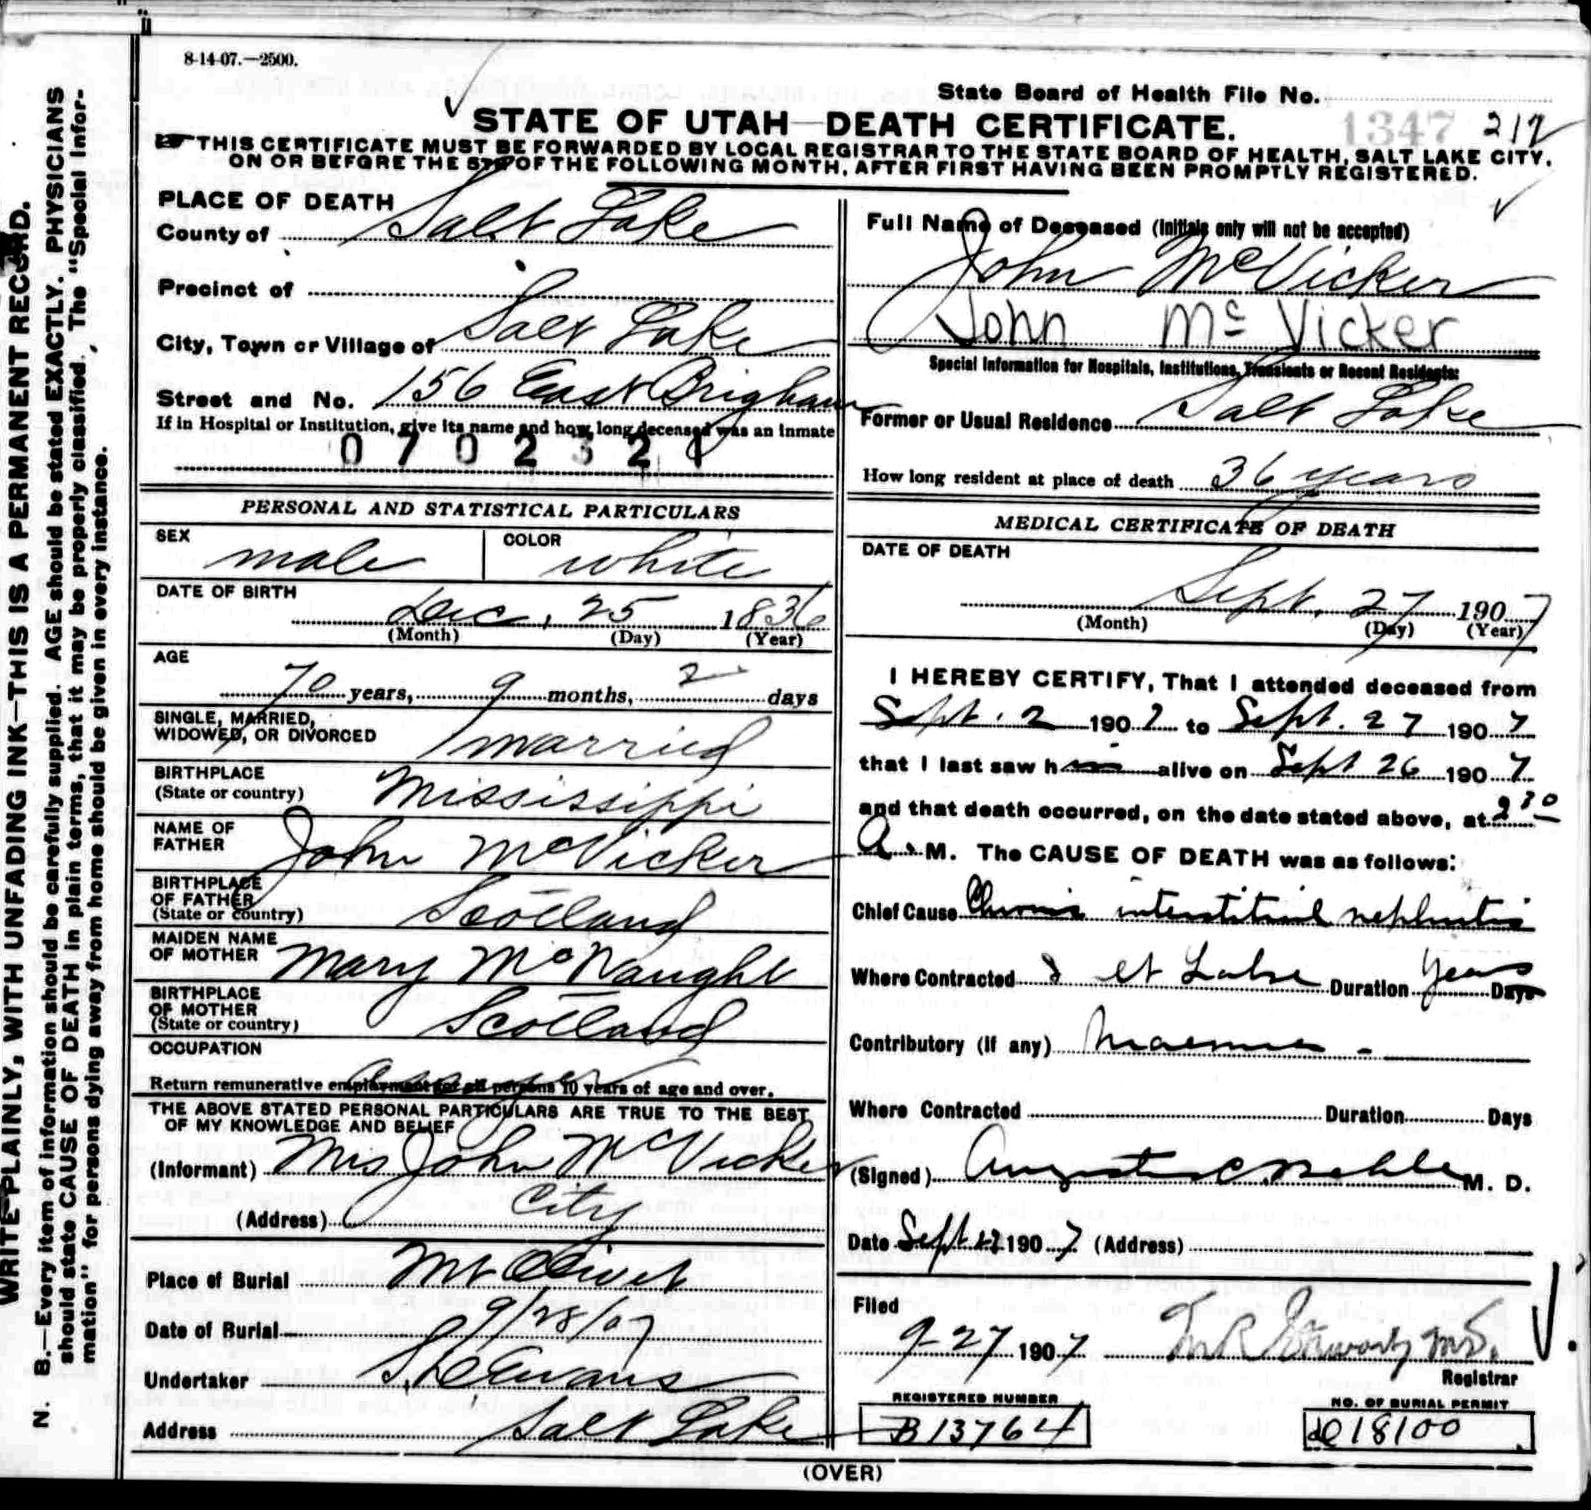 8-14-07.—2500.
State Board of Health File No.
1347 212
STATE OF UTAH—DEATH CERTIFICATE.
THIS CERTIFICATE MUST BE FORWARDED BY LOCAL REGISTRAR TO THE STATE BOARD OF HEALTH, SALT LAKE CITY,
ON OR BEFORE THE 5TH OF THE FOLLOWING MONTH, AFTER FIRST HAVING BEEN PROMPTLY REGISTERED.
WRITE PLAINLY, WITH UNFADING INK—THIS IS A PERMANENT RECORD.
N. B.—Every item of information should be carefully supplied. AGE should be stated EXACTLY. PHYSICIANS
should state CAUSE OF DEATH in plain terms, that it may be properly classified. The "Special Infor-
mation" for persons dying away from home should be given in every instance.
PLACE OF DEATH
County of Salt Lake
Precinct of
City, Town or Village of Salt Lake
Street and No. 156 East Brigham
If in Hospital or Institution, give its name and how long deceased was an Inmate
0702321
PERSONAL AND STATISTICAL PARTICULARS
SEX male COLOR white
DATE OF BIRTH
Dec. 25 1836
(Month) (Day) (Year)
AGE
70 years, 9 months, 2 days
SINGLE, MARRIED,
WIDOWED, OR DIVORCED married
BIRTHPLACE
(State or country) Mississippi
NAME OF
FATHER John McVicker
BIRTHPLACE
OF FATHER
(State or country) Scotland
MAIDEN NAME
OF MOTHER Mary McNaught
BIRTHPLACE
OF MOTHER
(State or country) Scotland
OCCUPATION
assayer
Return remunerative employment for all persons 10 years of age and over.
THE ABOVE STATED PERSONAL PARTICULARS ARE TRUE TO THE BEST
OF MY KNOWLEDGE AND BELIEF
(Informant) Mrs John McVicker
(Address) City
Place of Burial Mt Olivet
Date of Burial— 9/28/07
Undertaker Evans
Address Salt Lake
Full Name of Deceased (Initials only will not be accepted)
John McVicker
John Mc Vicker
Special Information for Hospitals, Institutions, Transients or Recent Residents:
Former or Usual Residence Salt Lake
How long resident at place of death 36 years
MEDICAL CERTIFICATE OF DEATH
DATE OF DEATH
Sept. 27 1907
(Month) (Day) (Year)
I HEREBY CERTIFY, That I attended deceased from
Sept. 2 1907 to Sept. 27 1907
that I last saw him alive on Sept 26 1907
and that death occurred, on the date stated above, at 2 30
A. M. The CAUSE OF DEATH was as follows:
Chief Cause Chronic interstitial nephritis
Where Contracted S Lt Lake Duration Years Days
Contributory (if any)
Where Contracted Duration Days
(Signed) August C. Behle M. D.
Date Sept 1907 (Address)
Filed
9-27 1907 M.D.
Registrar
REGISTERED NUMBER
B13764
NO. OF BURIAL PERMIT
18100
(OVER)